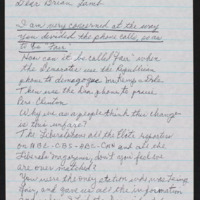 Dear Brian Lamb
I am very concerned at the way
you divided the phone calls, so as
to be "fair"
How can it be called "fair" when
the Democrats use the Republican
phone to demagogue
Then use the Dem phone to praise
Pres Clinton
Why are so people think this change
is too unfair?
The Liberals have all the reporters
on ABC - CBS - NBC - CNN and all the
Liberal Magazines, don't you feel we
are over matched?
You were the only station who was being
fair, and gave us all the information